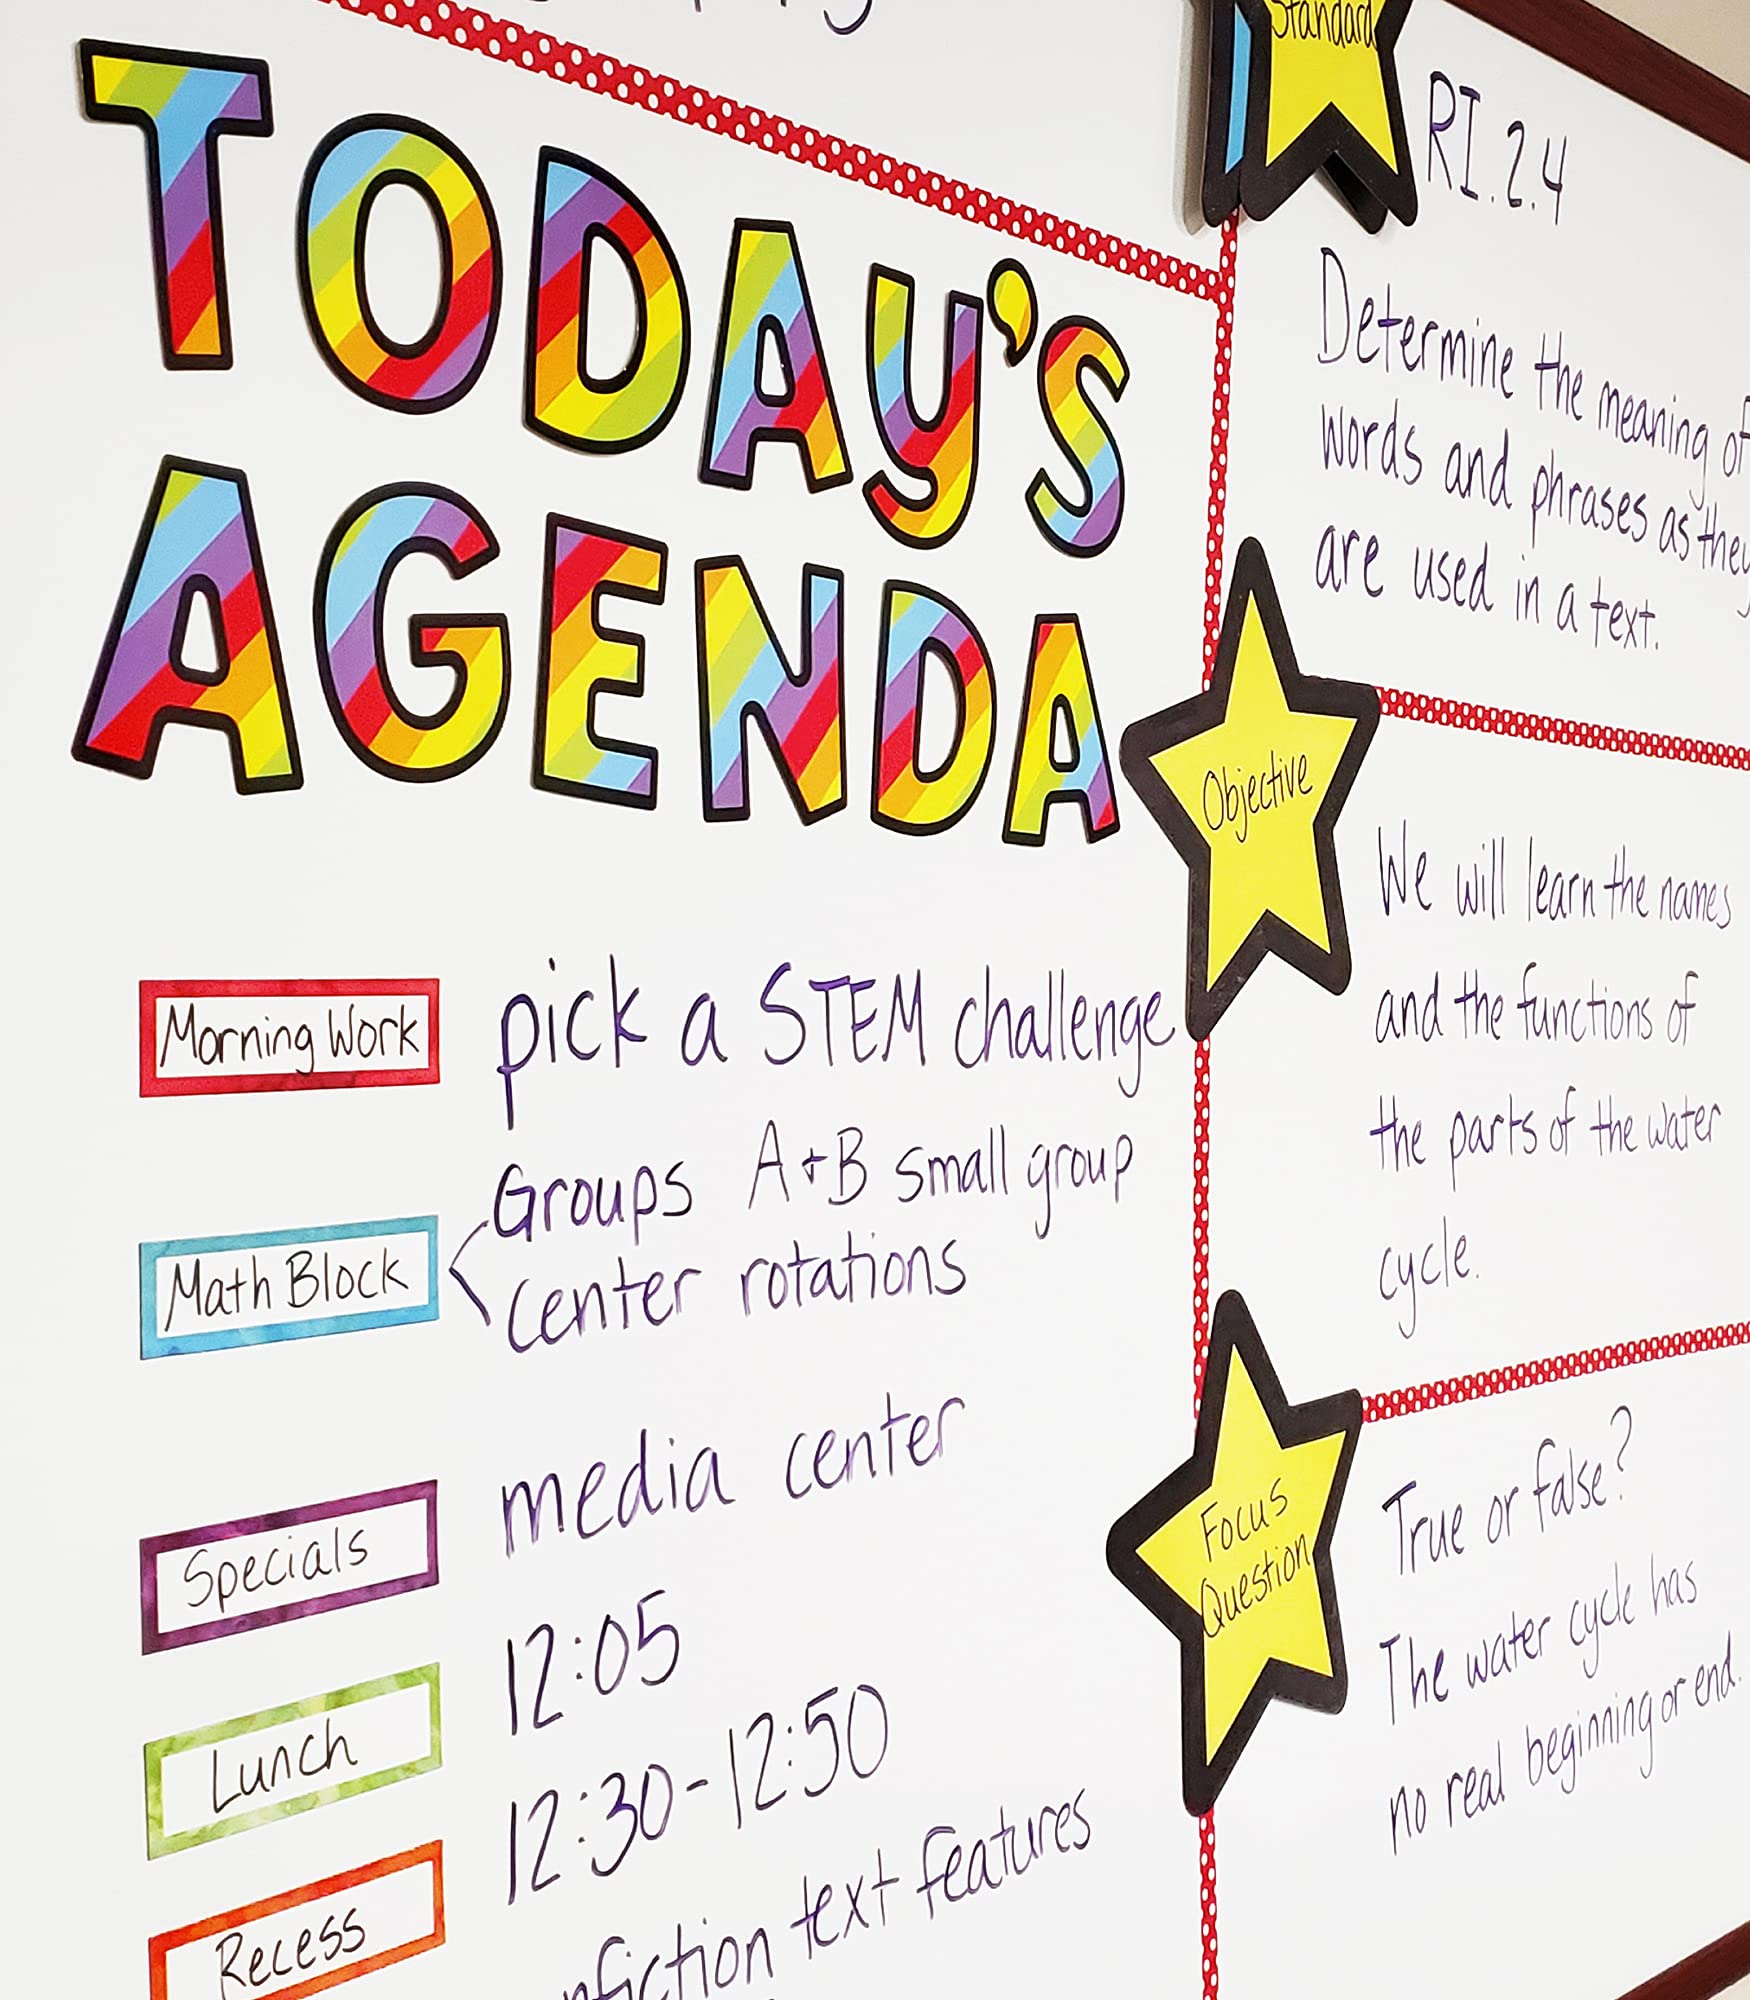 TODAY'S
AGENDA
Morning Work
pick a STEM challenge
Math Block
Groups A+B small group
center rotations
Specials
media center
Lunch
12:05
Recess
12:30-12:50
nfiction text features
Standard
RI.2.4
Determine the meaning of
words and phrases as they
are used in a text.
Objective
We will learn the names
and the functions of
the parts of the water
cycle.
Focus
Question
True or false?
The water cycle has
no real beginning or end.